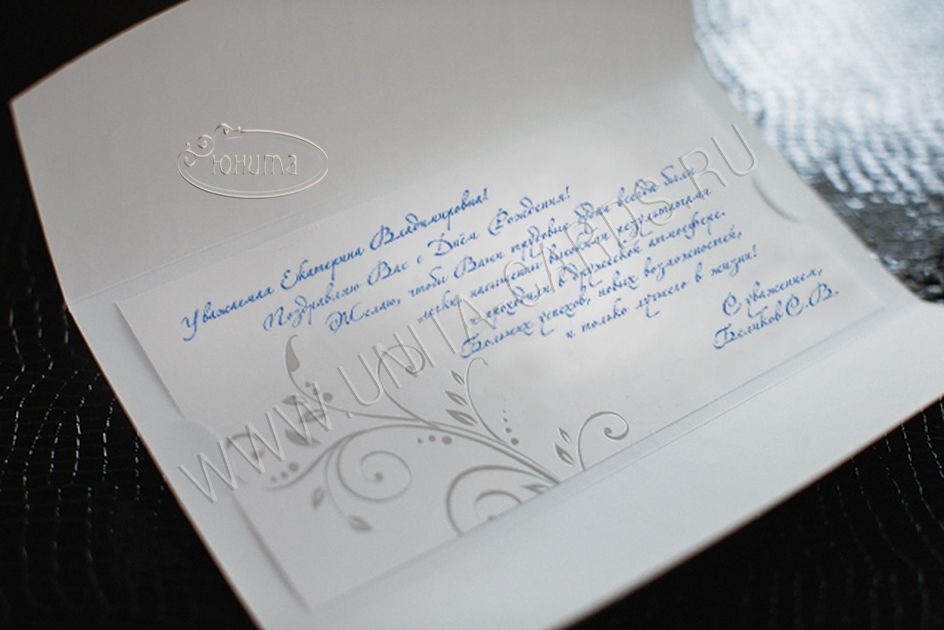 Юнита
Уважаемая Екатерина Владимировна!
Поздравляю Вас с Днём Рождения!
Желаю, чтобы Ваши трудовые дни всегда были
легки, насыщены высокими результатами
и проходили в дружеской атмосфере.
Больших успехов, новых возможностей,
и только лучшего в жизни!
С уважением,
Беликов С.В.
WWW.UNITACARDS.RU